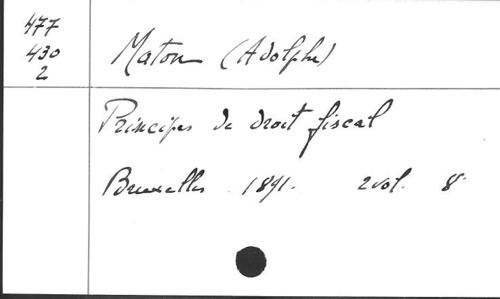 477
430
2
Maton (Adolphe)
Principes de droit fiscal
Bruxelles. 1891. 2 vol. 8°